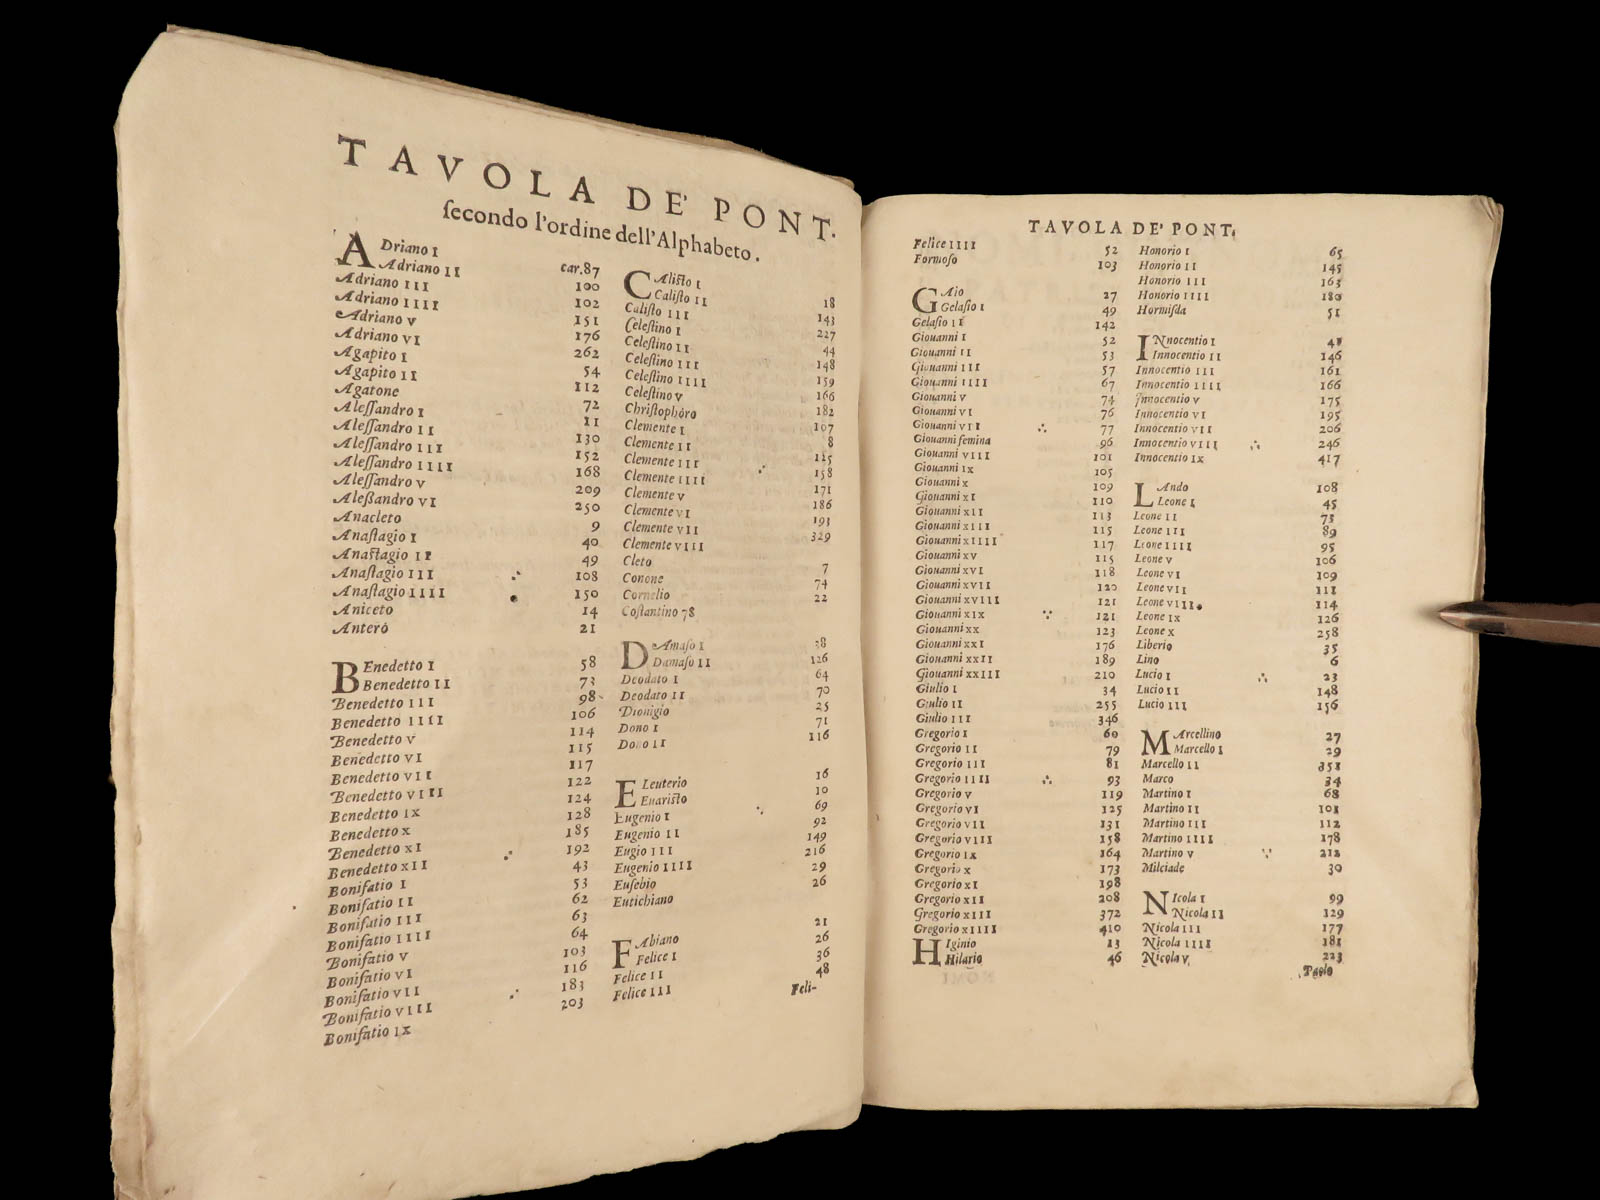 TAVOLA DE' PONT.
ſecondo l'ordine dell'Alphabeto.
ADriano I car.87
Adriano II 100
Adriano III 102
Adriano IIII 151
Adriano V 176
Adriano VI 262
Agapito I 54
Agapito II 112
Agatone 72
Aleſſandro I 11
Aleſſandro II 130
Aleſſandro III 152
Aleſſandro IIII 168
Aleſſandro V 209
Aleßandro VI 250
Anacleto 9
Anaſtagio I 40
Anaſtagio II 49
Anaſtagio III 108
Anaſtagio IIII 150
Aniceto 14
Anterò 21
BEnedetto I 58
Benedetto II 73
Benedetto III 98
Benedetto IIII 106
Benedetto V 114
Benedetto VI 115
Benedetto VII 117
Benedetto VIII 122
Benedetto IX 124
Benedetto X 128
Benedetto XI 185
Benedetto XII 192
Bonifatio I 43
Bonifatio II 53
Bonifatio III 62
Bonifatio IIII 63
Bonifatio V 64
Bonifatio VI 103
Bonifatio VII 116
Bonifatio VIII 183
Bonifatio IX 203
CAliſto I 18
Caliſto II 143
Caliſto III 227
Celeſtino I 44
Celeſtino II 148
Celeſtino III 159
Celeſtino IIII 166
Celeſtino V 182
Chriſtophoro 107
Clemente I 8
Clemente II 125
Clemente III 158
Clemente IIII 171
Clemente V 186
Clemente VI 193
Clemente VII 329
Clemente VIII
Cleto 7
Conone 74
Cornelio 22
Coſtantino 78
DAmaſo I 38
Damaſo II 126
Deodato I 64
Deodato II 70
Dionigio 25
Dono I 71
Dono II 116
ELeuterio 16
Euariſto 10
Eugenio I 69
Eugenio II 92
Eugio III 149
Eugenio IIII 216
Euſebio 29
Eutichiano 26
FAbiano 21
Felice I 26
Felice II 36
Felice III 48
Feli-
TAVOLA DE' PONT.
Felice IIII 52
Formoſo 103
GAio 27
Gelaſio I 49
Gelaſio II 142
Giouanni I 52
Giouanni II 53
Giouanni III 57
Giouanni IIII 67
Giouanni V 74
Giouanni VI 76
Giouanni VII 77
Giouanni femina 96
Giouanni VIII 101
Giouanni IX 105
Giouanni X 109
Giouanni XI 110
Giouanni XII 113
Giouanni XIII 115
Giouanni XIIII 117
Giouanni XV 115
Giouanni XVI 118
Giouanni XVII 120
Giouanni XVIII 121
Giouanni XIX 121
Giouanni XX 123
Giouanni XXI 176
Giouanni XXII 189
Giouanni XXIII 210
Giulio I 34
Giulio II 255
Giulio III 346
Gregorio I 60
Gregorio II 79
Gregorio III 81
Gregorio IIII 93
Gregorio V 119
Gregorio VI 125
Gregorio VII 131
Gregorio VIII 158
Gregorio IX 164
Gregorio X 173
Gregorio XI 198
Gregorio XII 208
Gregorio XIII 372
Gregorio XIIII 410
HIginio 13
Hilario 46
Honorio I 65
Honorio II 145
Honorio III 163
Honorio IIII 180
Hormiſda 51
INnocentio I 41
Innocentio II 146
Innocentio III 161
Innocentio IIII 166
Innocentio V 175
Innocentio VI 195
Innocentio VII 206
Innocentio VIII 246
Innocentio IX 417
LAndo 108
Leone I 45
Leone II 73
Leone III 89
Leone IIII 95
Leone V 106
Leone VI 109
Leone VII 111
Leone VIII 114
Leone IX 126
Leone X 258
Liberio 35
Lino 6
Lucio I 23
Lucio II 148
Lucio III 156
MArcellino 27
Marcello I 29
Marcello II 351
Marco 34
Martino I 68
Martino II 101
Martino III 112
Martino IIII 178
Martino V 212
Milciade 30
NIcola I 99
Nicola II 129
Nicola III 177
Nicola IIII 181
Nicola V 223
Paolo